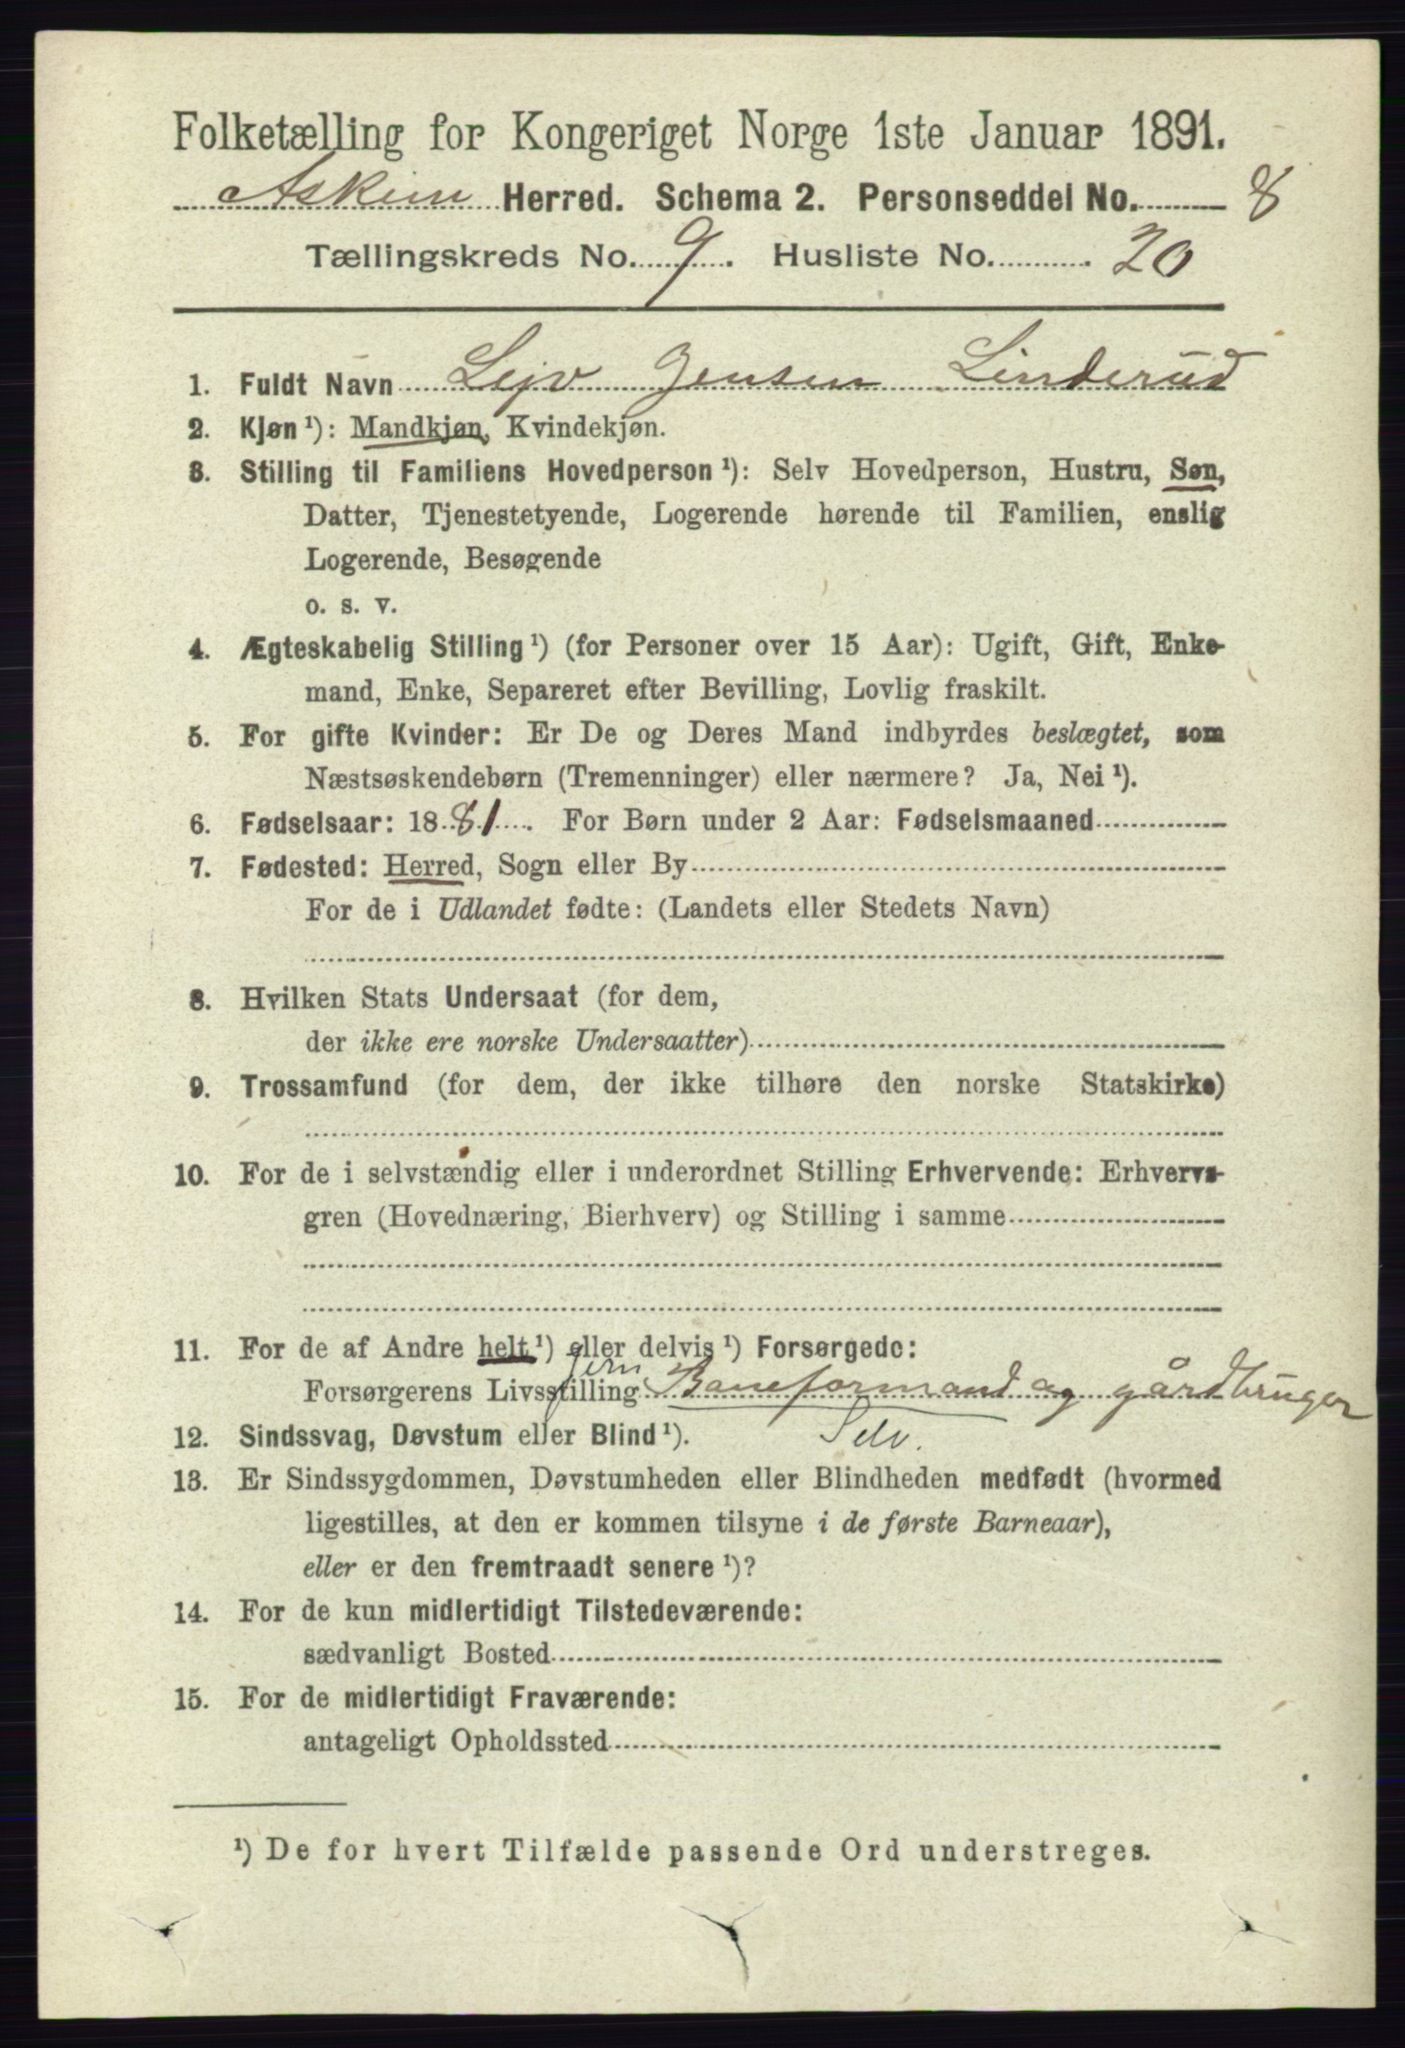 Folketælling for Kongeriget Norge 1ste Januar 1891.
Askim Herred. Schema 2. Personseddel No. 8
Tællingskreds No. 9. Husliste No. 20
1. Fuldt Navn Lejv Jensen Linderud
2. Kjøn ¹): Mandkjøn, Kvindekjøn.
3. Stilling til Familiens Hovedperson ¹): Selv Hovedperson, Hustru, Søn,
Datter, Tjenestetyende, Logerende hørende til Familien, enslig
Logerende, Besøgende
o. s. v.
4. Ægteskabelig Stilling ¹) (for Personer over 15 Aar): Ugift, Gift, Enke-
mand, Enke, Separeret efter Bevilling, Lovlig fraskilt.
5. For gifte Kvinder: Er De og Deres Mand indbyrdes beslægtet, som
Næstsøskendebørn (Tremenninger) eller nærmere? Ja, Nei ¹).
6. Fødselsaar: 1881. For Børn under 2 Aar: Fødselsmaaned
7. Fødested: Herred, Sogn eller By
For de i Udlandet fødte: (Landets eller Stedets Navn)
8. Hvilken Stats Undersaat (for dem,
der ikke ere norske Undersaatter)
9. Trossamfund (for dem, der ikke tilhøre den norske Statskirke)
10. For de i selvstændig eller i underordnet Stilling Erhvervende: Erhvervs-
gren (Hovednæring, Bierhverv) og Stilling i samme
11. For de af Andre helt ¹) eller delvis ¹) Forsørgede:
Jern
Forsørgerens Livsstilling Baneformand og gårdbruger
12. Sindssvag, Døvstum eller Blind ¹). Selv.
13. Er Sindssygdommen, Døvstumheden eller Blindheden medfødt (hvormed
ligestilles, at den er kommen tilsyne i de første Barneaar),
eller er den fremtraadt senere ¹)?
14. For de kun midlertidigt Tilstedeværende:
sædvanligt Bosted
15. For de midlertidigt Fraværende:
antageligt Opholdssted
¹) De for hvert Tilfælde passende Ord understreges.